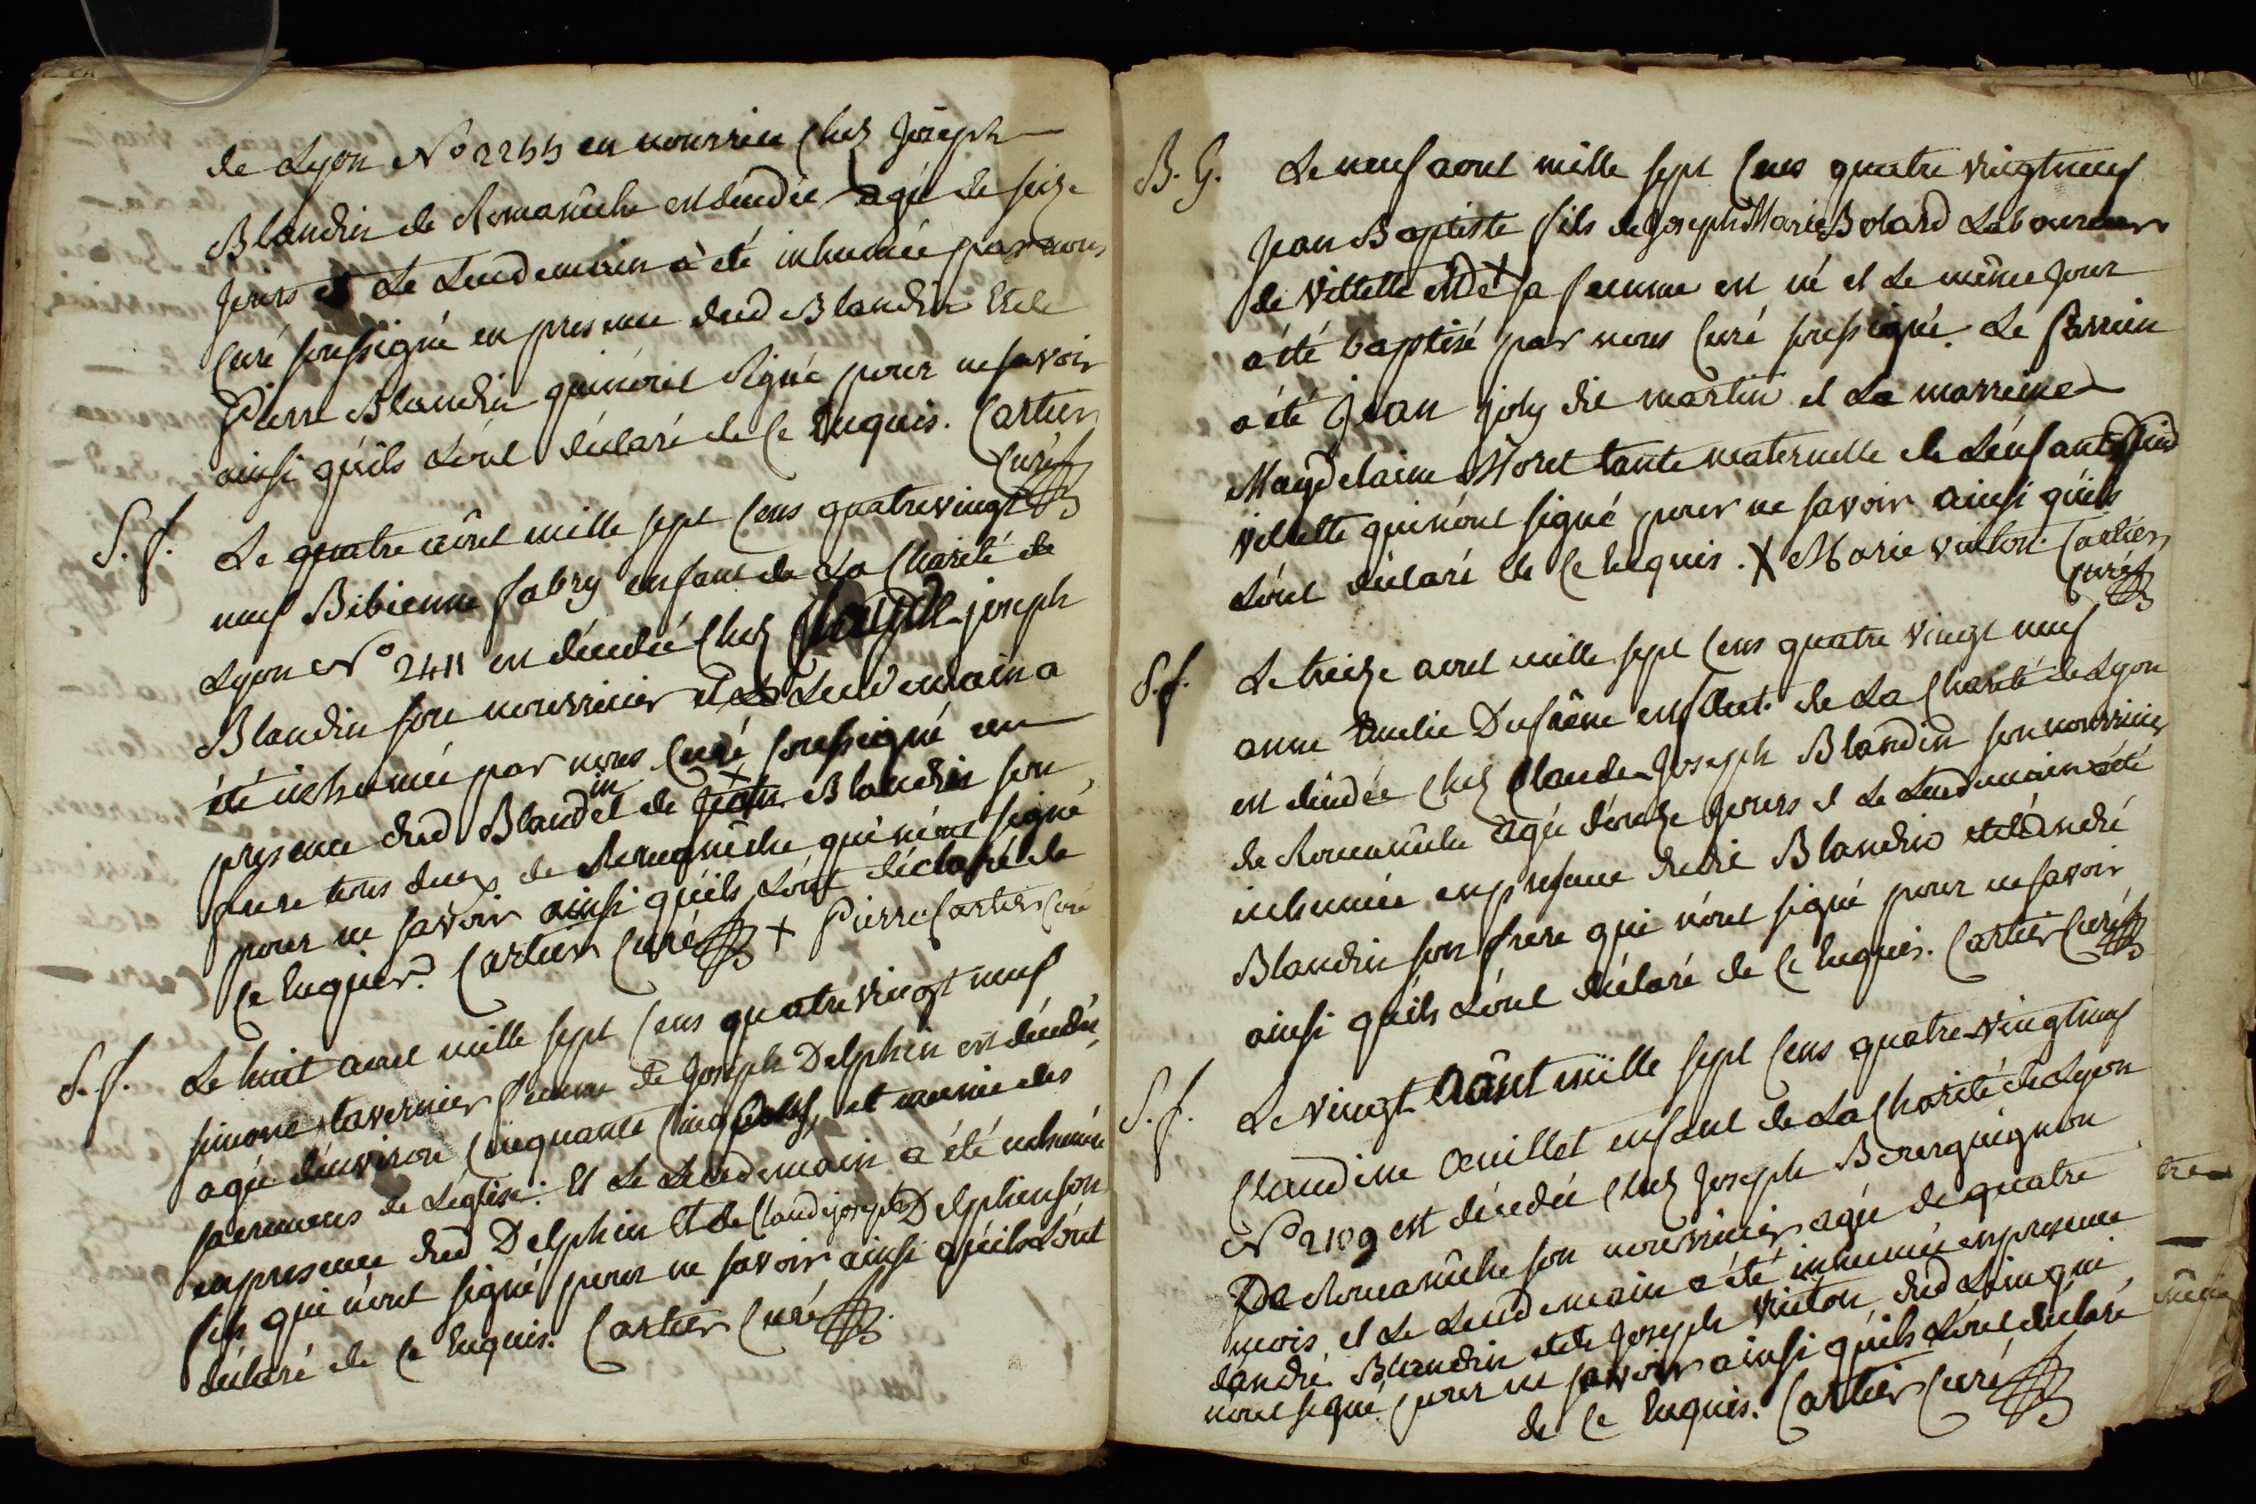 de Lyon No 2255 en nourrice chez Joseph
Blandin de Romanêche est décédée agée de seize
jours et le lendemain à été inhumée par nous
curé soussigné en presence dud Blandin et de
Pierre Blandin qui n'ont signé pour ne savoir
ainsi qu'ils l'ont déclaré de ce enquis. Cartier
curé
S. f. Le quatre août mille sept cens quatrevingt
neuf Bibienne fabry enfant de la Charité de
Lyon No 2411 est décédée chez joseph
Blandin son nourricier et le lendemain a
été inhumée par nous curé soussigné en
presence dud Blandin et de Jean X Blandin son
frere tous deux de Romanêche qui n'ont signé
pour ne savoir ainsi qu'ils l'ont déclaré de
ce enquis. Cartier curé X Pierre Cartier curé
S. f. Le huit aout mille sept cens quatrevingt neuf
simone tavernier femme de Joseph Delphin est décédée,
agée d'environ cinquante cinq ans, et munie des
sacremens de Leglise. Et le lendemain a été inhumée
en presence dud Delphin et de Claude joseph Delphin son
fils qui n'ont signé pour ne savoir ainsi qu'ils l'ont
déclaré de ce enquis. Cartier curé
B. G. Le neuf aout mille sept cens quatre vingt neuf
Jean Baptiste fils de Joseph Marie Bolard Laboureur
de Villette et de X sa femme est né et le même jour
a été baptisé par nous curé soussigné. Le parrein
a été Jean joly dit martin et la marreine
Magdelaine Moret tante maternelle de l'enfant dud
villette qui n'ont signé pour ne savoir ainsi qu'ils
l'ont déclaré de ce enquis. X Marie vuiton. Cartier
curé
S. f. Le treize aout mille sept cens quatre vingt neuf
anne Emelie Dufrêne enfant de la Charité de Lyon
est décédée chez Claude Joseph Blandin son nourricier
de Romanêche agée d'onze jours et le lendemain a été
inhumée en presence dudit Blandin et d'andré
Blandin son frere qui n'ont signé pour ne savoir
ainsi qu'ils l'ont déclaré de ce enquis. Cartier curé
S. f. Le vingt Août mille sept cens quatre-vingt neuf
Claudine Oeuillet enfant de la Charité de Lyon
No 2109 est décédée chez Joseph Bourguignon
De Romanêche son nourricier agée de quatre
mois, et le lendemain a été inhumée en presence
d'andré Blandin et de Joseph Vuiton dud Lieu qui
n'ont signé pour ne savoir ainsi qu'ils l'ont declaré
de ce enquis. Cartier curé